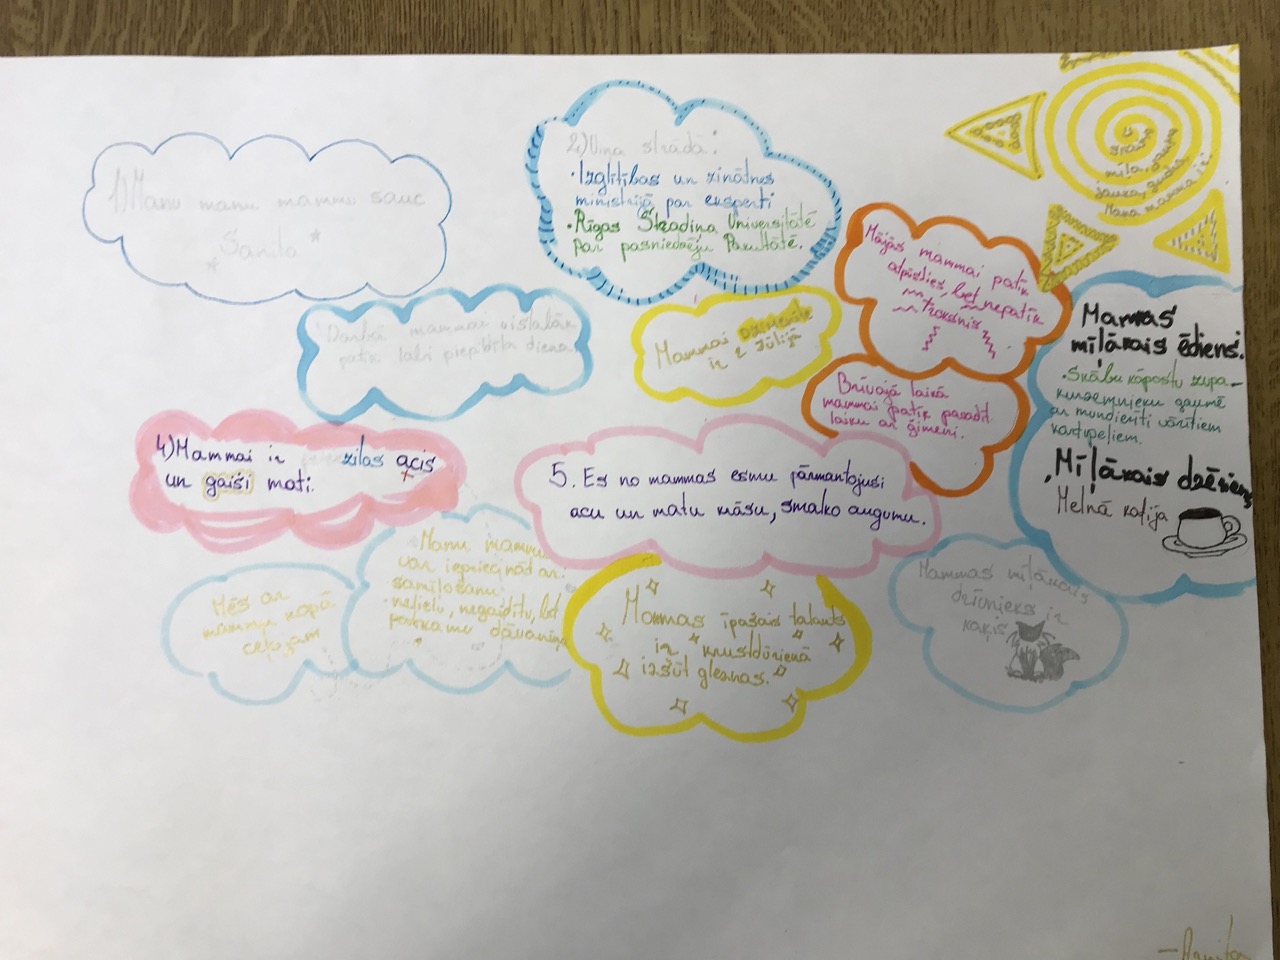 1) Manu manu mammu sauc
Sanita
2) Viņa strādā:
• Izglītības un zinātnes
ministrijā par eksperti
• Rīgas Stradiņa Universitātē
par pasniedzēju fakultātē.
Mājās mammai patīk
atpūsties, bet nepatīk
troksnis
mīļa,
jauka, gudra,
Mana mamma ir:
Darbā mammai vislabāk
patīk labi piepildīta diena
Mammai dzimene
ir 2 Jūlijā
Brīvajā laikā
mammai patīk pavadīt
laiku ar ģimeni.
Mammas
mīļākais ēdiens:
• Skābu kāpostu zupa
kurzemnieku gaumē
ar mundierītī vārītiem
kartupeļiem.
Mīļākais dzēriens
Melnā kafija
4) Mammai ir zilas acis
un gaiši mati.
5. Es no mammas esmu pārmantojusi
acu un matu krāsu, smalko augumu.
Manu mammu
var iepriecināt ar:
samīļošanu
• nelielu, negaidītu, bet
patīkamu dāvaniņu
Mēs ar
mammu kopā
ceļojam
Mammas īpašais talants
ir krustdūrienā
izšūt gleznas.
Mammas mīļākais
dzīvnieks ir
kaķis